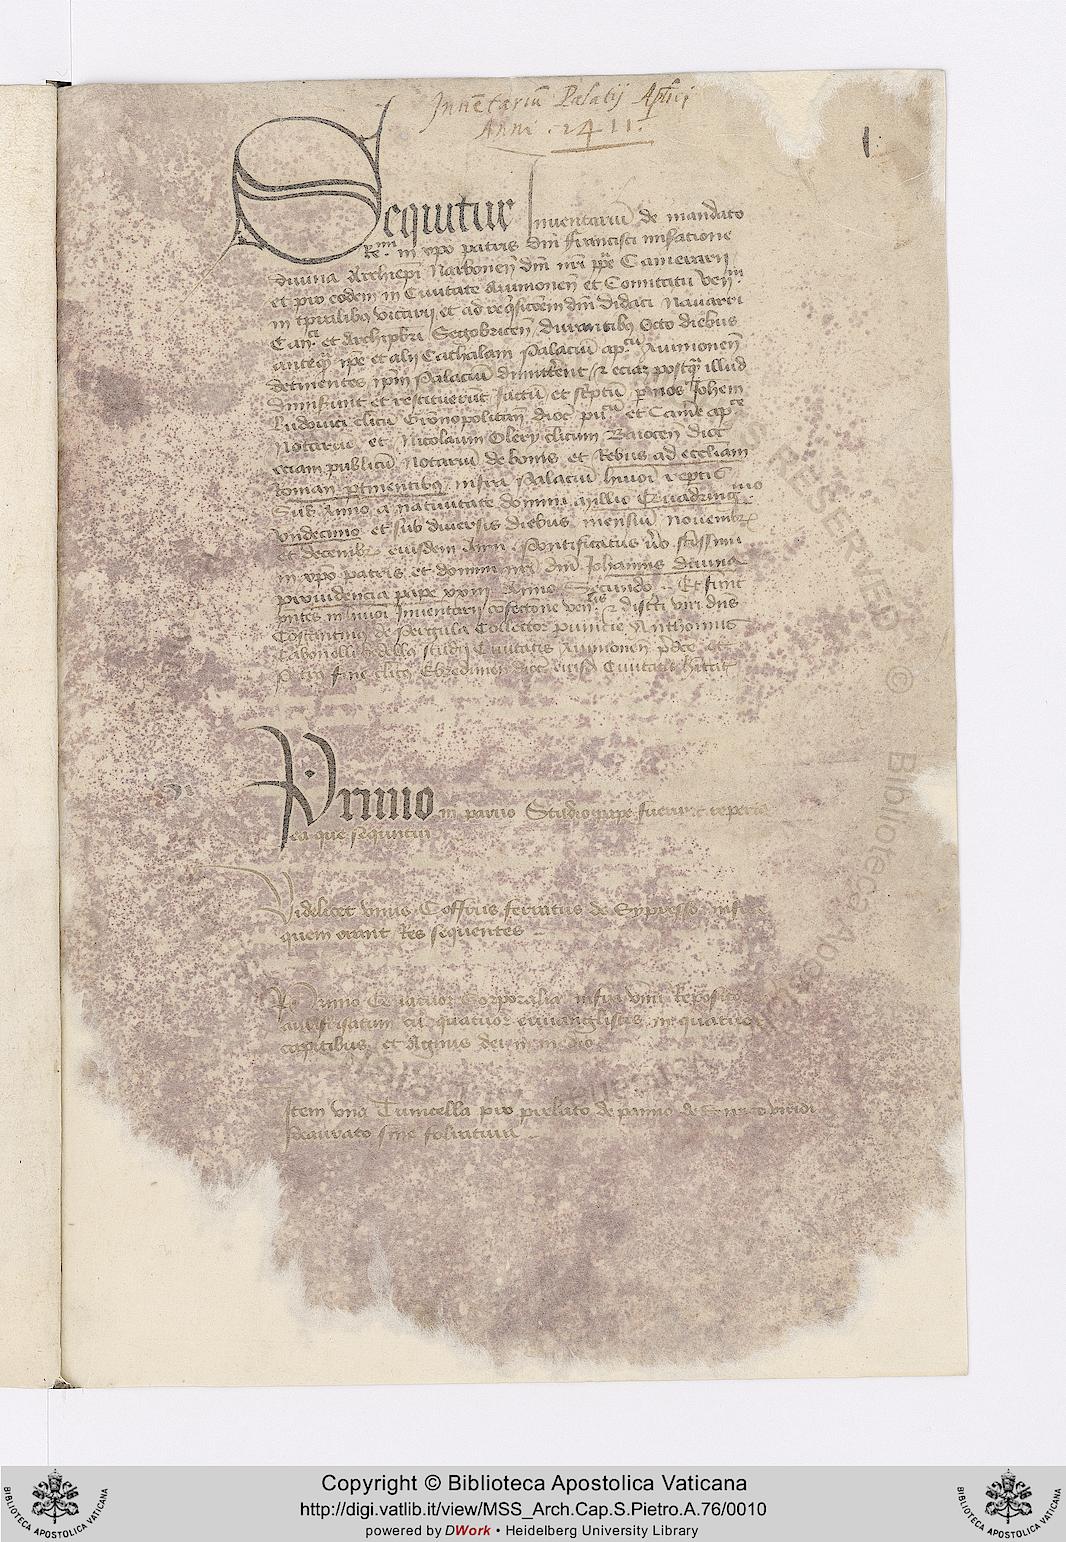 Inue͞tariũ Palatij Ap͞lici
Anni . 1411.
1.
Sequitur Inuentariũ de mandato
Reᵐⁱ in xp̃o patris dñi Francisci miseratione
diuina Archiep̃i Narbonen̄ dñi nr̃i pp̃e Camerarij
et pro eodem in Ciuitate Auinionen̄ et Comitatu
in tp̃ralibus vicarij et ad req̃sic̃oem dñi didaci Nauarri
et Archipbr̃i Segobricen̄ durantibꝯ Octo diebus
anteq̃ ip̃e et alij Cathalani Palaciũ apᶜũ Auinionen̄
detinentes ip̃m Palaciũ dimitterent et eciaz postq̃ illud
dimiserunt et restituerũt factũ et sc̃ptũ p nos Joh̃em
Ludouici cl̃icũ Gr̃onopolitan̄ dioc̃ et Cam̃e apᶜᵉ
Notariũ et Nicolaum Olerij cl̃icum Baiocen̄ dioc̃
eciam publicũ Notariũ de bonis et Rebus ad eccl̃iam
Roman̄ p̱tinentibꝯ infra Palaciũ h̃moi rep̱tis
Sub Anno a natiuitate domini millᵒ Quadring̃ᵐᵒ
vndecimo et sub diuersis diebus mensiũ nouembr̃
et decembr̃ eiusdem Anni Pontificatus v̊o sc̃issimi
in xp̃o patris et domini nr̃i dñi Johannis diuina
prouidencia pape xxiij Anno Secundo Et sunt
pñtes in h̃moi Inuentarij cõfectione ven̄ˡᵉˢ et disc̃ti viri dñs
Costantinus de Pergula Collector puincie Anthonius
Cabonelli bedellus studij Ciuitatis Auinionen̄ p̃dc̃e et
Petrus cl̃icꝯ Ebredunen̄ dioc̃ eiusd̃ Ciuitatis h̃itat̃
Primo in paruo Studio pape fuerunt reperta
ea que sequntur
Videlicet vnus Coffrus ferratus de Sypresso infra
quem erant Res sequentes
Primo Quatuor Corporalia infra vnũ Repositor
aurifrisatum cũ quatuor euuanglistis in quatuor
capitibus et Agnus dei in medio
Item vna Tunicella pro prelato de panno de viridi
deaurato sine folratura
Copyright © Biblioteca Apostolica Vaticana
http://digi.vatlib.it/view/MSS_Arch.Cap.S.Pietro.A.76/0010
powered by DWork • Heidelberg University Library
BIBLIOTECA APOSTOLICA VATICANA
BIBLIOTECA APOSTOLICA VATICANA